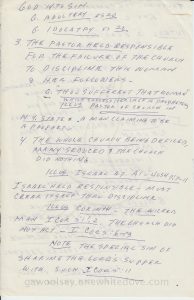 GOD HITS SIN
a. ADULTERY vs 20
b. IDOLATRY vs 20
3. THE PASTOR HELD RESPONSIBLE
FOR THE FAILURE OF THE CHURCH
TO DISCIPLINE THIS WOMAN
& HER FOLLOWERS.
a. THOU SUFFEREST THAT WOMAN
PASTOR OF CHURCH
A WOMAN CLAIMING TO BE
A PROPHET
4. THE WHOLE CHURCH BEING DECEIVED,
MANY SEDUCED & THE CHURCH
DID NOTHING.
ILLUS. ISRAEL AT AI - JOSHUA 7
ISRAEL HELD RESPONSIBLE & MUST
THEIR DISCIPLINE
ILLUS CORINTH - THE WICKED
MAN I COR 5:1,2. THE CHURCH DID
NOT ACT - I COR 5:
NOTE THE SPECIAL SIN OF
SHARING THE LORD'S SUPPER
WITH SUCH I COR 5:11
gawoolsey.onewhitedove.com